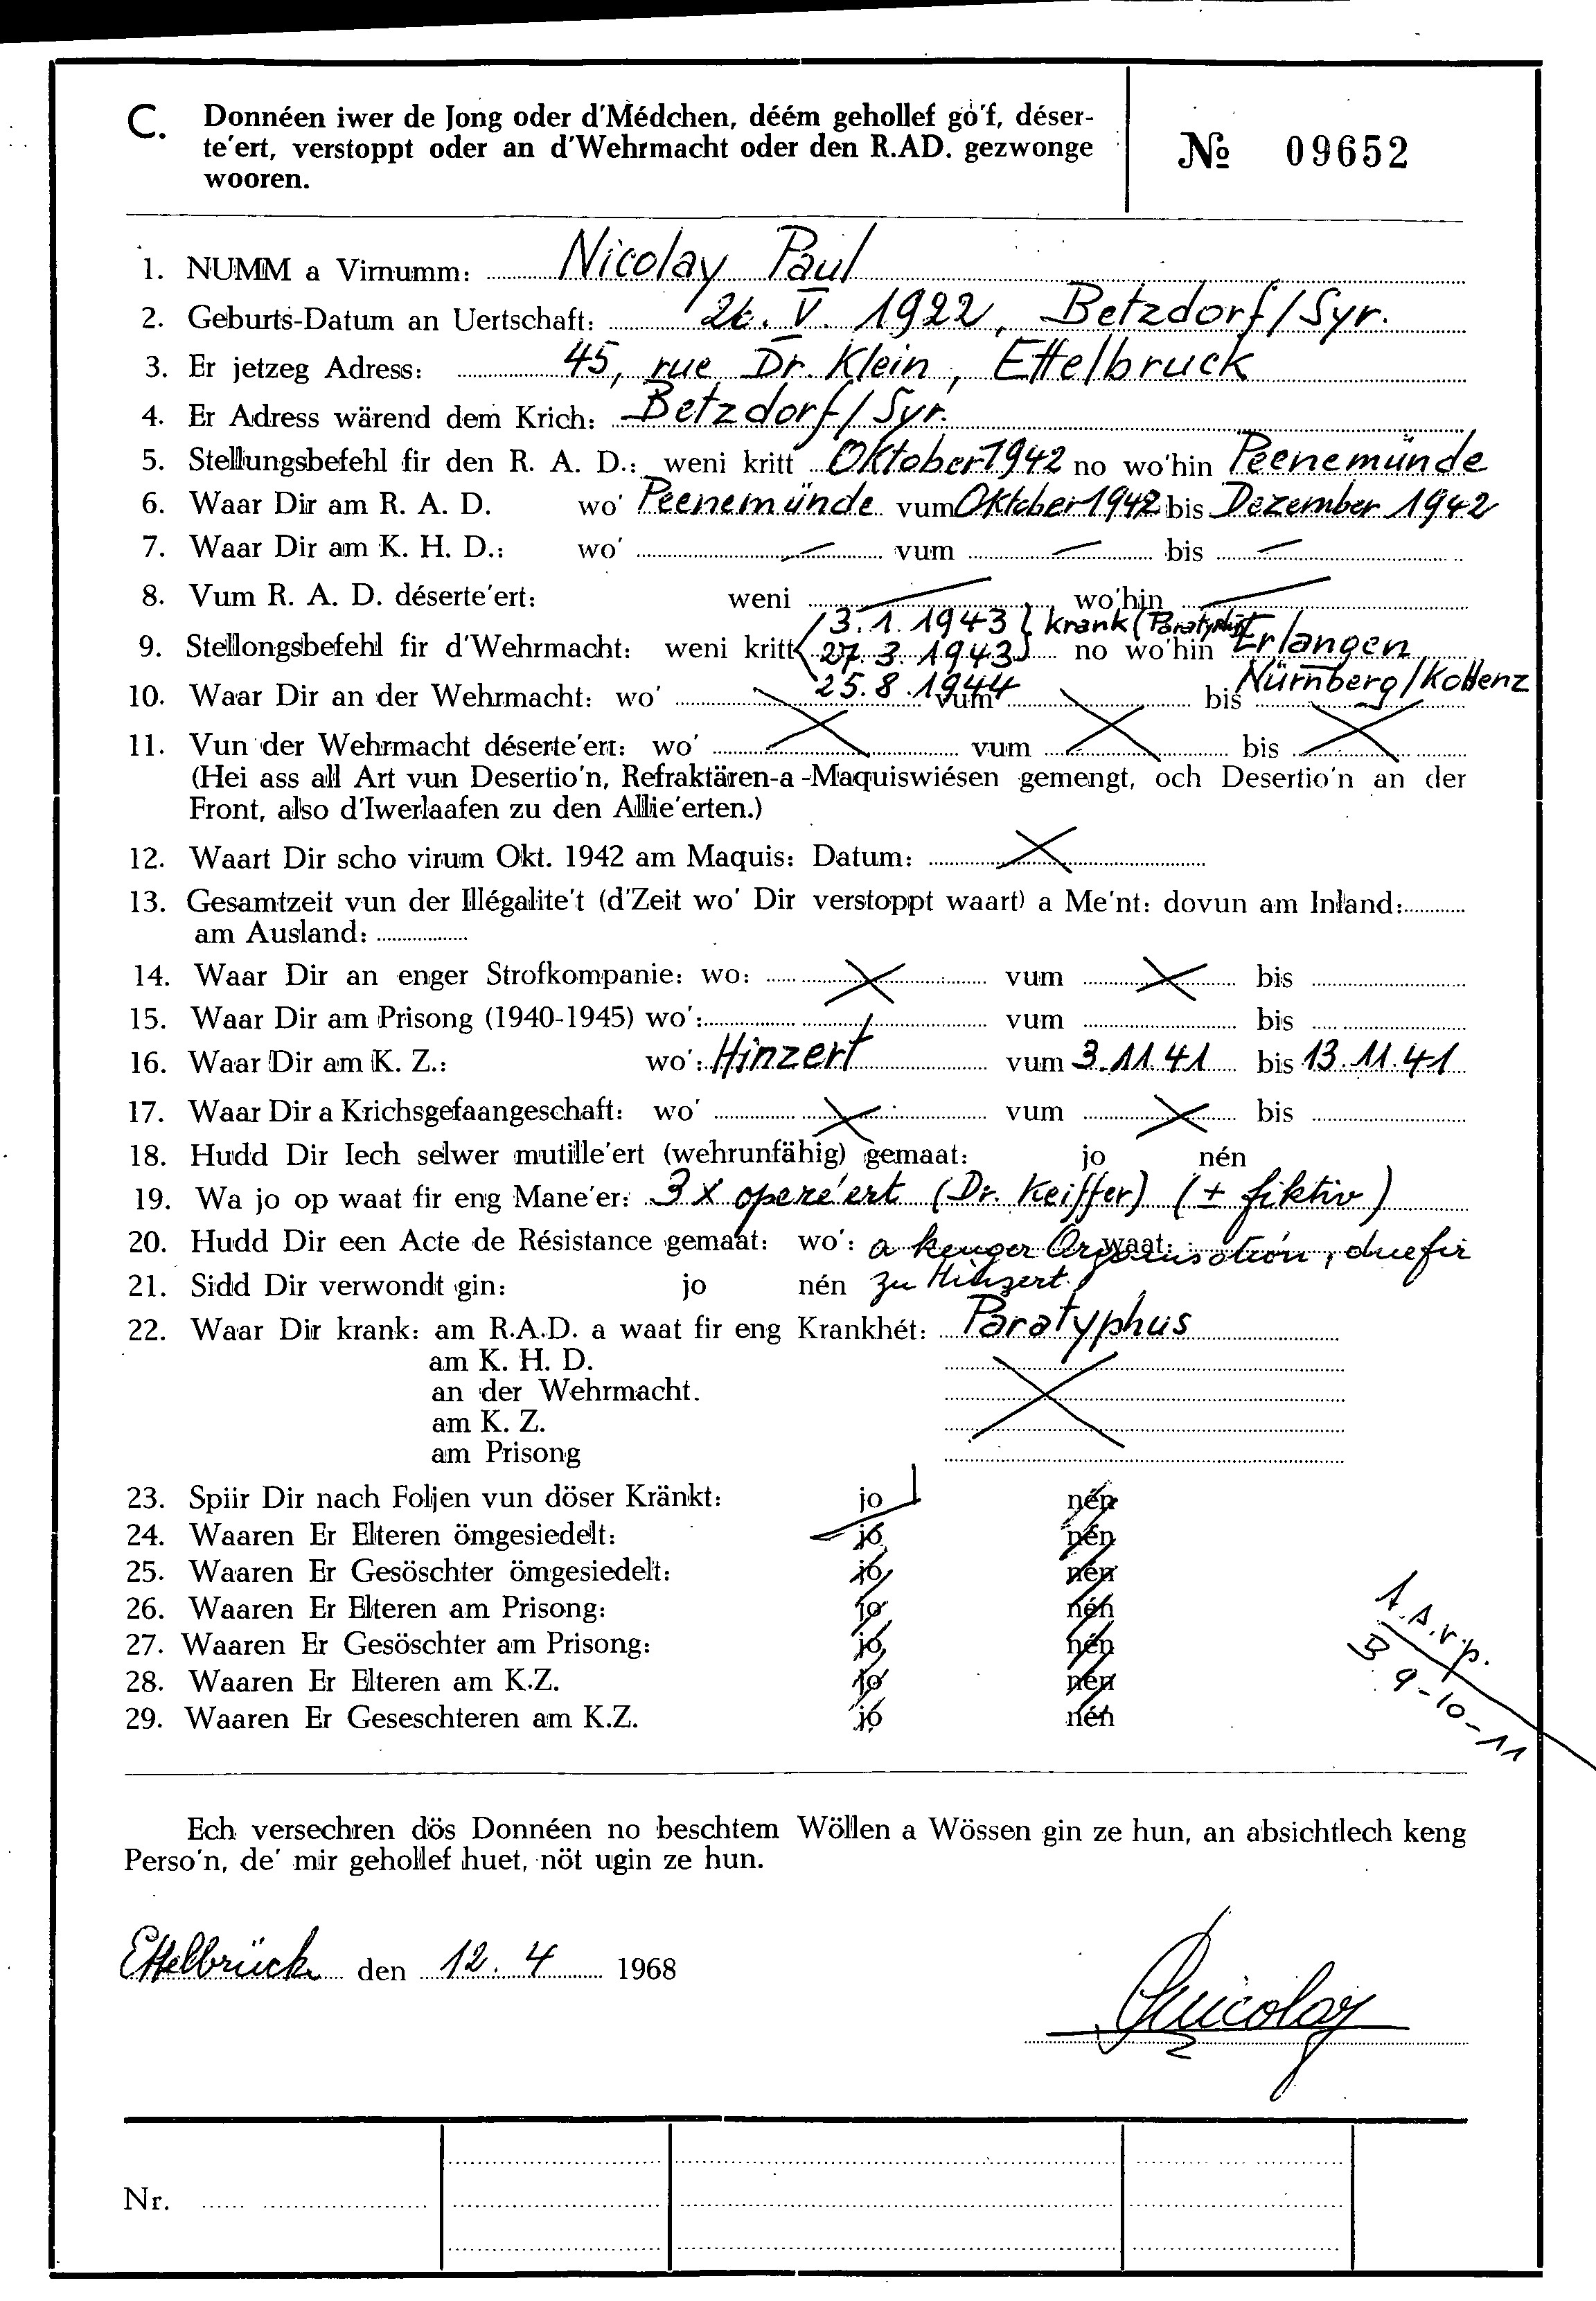 C. Donnéen iwer de Jong oder d'Médchen, déém gehollef go'f, déser-
te'ert, verstoppt oder an d'Wehrmacht oder den R.AD. gezwonge
wooren.
№ 09652
1. NUMM a Virnumm: Nicolay Paul
2. Geburts-Datum an Uertschaft: 26. V. 1922, Betzdorf/Syr.
3. Er jetzeg Adress: 45, rue Dr. Klein, Ettelbruck
4. Er Adress wärend dem Krich: Betzdorf/Syr.
5. Stellungsbefehl fir den R. A. D.: weni kritt Oktober 1942 no wo'hin Peenemünde
6. Waar Dir am R. A. D. wo' Peenemünde vum Oktober 1942 bis Dezember 1942
7. Waar Dir am K. H. D.: wo' — vum — bis —
8. Vum R. A. D. déserte'ert: weni — wo'hin —
3.1.1943 } krank (Paratyphus)
9. Stellongsbefehl fir d'Wehrmacht: weni kritt 27.3.1943 no wo'hin Erlangen
25.8.1944 Nürnberg/Koblenz
10. Waar Dir an der Wehrmacht: wo' vum bis
11. Vun der Wehrmacht déserte'ert: wo' vum bis
(Hei ass all Art vun Desertio'n, Refraktären-a-Maquiswiésen gemengt, och Desertio'n an der
Front, also d'Iwerlaafen zu den Allie'erten.)
12. Waart Dir scho virum Okt. 1942 am Maquis: Datum:
13. Gesamtzeit vun der Illégalite't (d'Zeit wo' Dir verstoppt waart) a Me'nt: dovun am Inland:
am Ausland:
14. Waar Dir an enger Strofkompanie: wo: vum bis
15. Waar Dir am Prisong (1940-1945) wo': vum bis
16. Waar Dir am K. Z.: wo': Hinzert vum 3.11.41 bis 13.11.41
17. Waar Dir a Krichsgefaangeschaft: wo' vum bis
18. Hudd Dir Iech selwer mutille'ert (wehrunfähig) gemaat: jo nén
19. Wa jo op waat fir eng Mane'er: 3 x opere'ert (Dr. Keiffer) (± fiktiv)
20. Hudd Dir een Acte de Résistance gemaat: wo': waat: a kenger Organisation, duefir
21. Sidd Dir verwondt gin: jo nén zu Hinzert.
22. Waar Dir krank: am R.A.D. a waat fir eng Krankhét: Paratyphus
am K. H. D.
an der Wehrmacht.
am K. Z.
am Prisong
23. Spiir Dir nach Foljen vun döser Kränkt: jo nén
24. Waaren Er Elteren ömgesiedelt: jo nén
25. Waaren Er Gesöschter ömgesiedelt: jo nén
26. Waaren Er Elteren am Prisong: jo nén
27. Waaren Er Gesöschter am Prisong: jo nén
28. Waaren Er Elteren am K.Z. jo nén
29. Waaren Er Geseschteren am K.Z. jo nén
B 9-10-11
Ech versechren dös Donnéen no beschtem Wöllen a Wössen gin ze hun, an absichtlech keng
Perso'n, de' mir gehollef huet, nöt ugin ze hun.
Ettelbrück den 12. 4 1968
Nicolay
Nr.